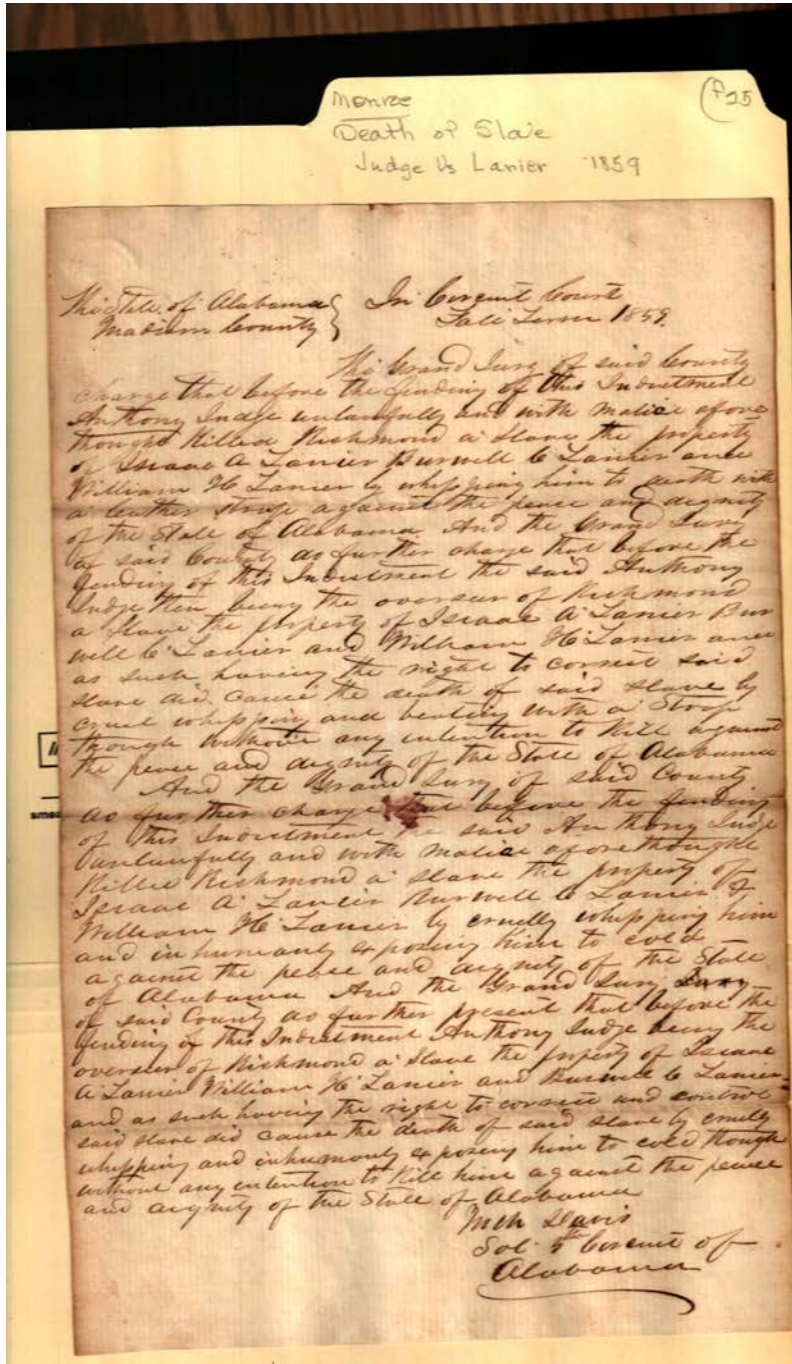 Monroe
(f25
Death of Slave
Judge Vs Lanier 1859
The State of Alabama } In Circuit Court
Madison County } Fall Term 1859.
The Grand Jury of said County
charge that before the finding of this Indictment
Anthony Judge unlawfully and with malice afore
thought Killed Richmond a Slave the property
of Isaac A Lanier Burwell C Lanier and
William H Lanier by whipping him to death with
a leather strap against the peace and dignity
of the State of Alabama And the Grand Jury
of said County do further charge that before the
finding of this Indictment the said Anthony
Judge then being the overseer of Richmond
a Slave the property of Isaac A Lanier Bur
well C Lanier and William H Lanier and
as such having the right to correct said
slave did cause the death of said slave by
cruel whipping and beating with a Strap
though without any intention to Kill against
the peace and dignity of the State of Alabama
And the Grand Jury of said County
do further charge that before the finding
of this Indictment the said Anthony Judge
unlawfully and with malice aforethought
Killed Richmond a slave the property of
Isaac A Lanier Burwell C Lanier &
William H Lanier by cruelly whipping him
and inhumanly exposing him to cold
against the peace and dignity of the State
of Alabama And the Grand Jury
of said County do further present that before the
finding of this Indictment Anthony Judge being the
overseer of Richmond a slave the property of Isaac
A Lanier William H Lanier and Burwell C Lanier
and as such having the right to correct and control
said slave did cause the death of said slave by cruelly
whipping and inhumanly exposing him to cold though
without any intention to Kill him against the peace
and dignity of the State of Alabama
Davis
Sol. 5th Circuit of
Alabama